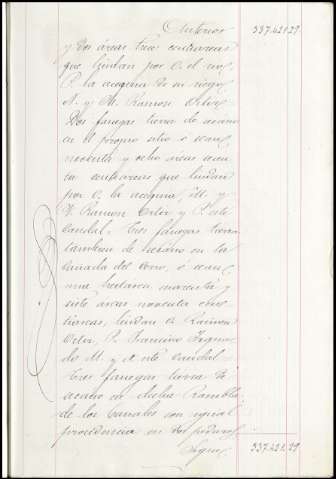 Anterior 337.421.29
y dos áreas tres centiareas
que lindan por E. el
P. la acequia de su riego
N. y M. Ramon Ortin
Dos fanegas tierra de secano
en el propio sitio ó sean
noventa y ocho areas
centiareas que lindan
por E. la acequia, M. y
N. Ramon Ortin y P. este
Caudal. Tres fanegas tierra
tambien de secano en la
Cañada del ó sean
una hectarea cuarenta y
siete areas noventa
tiareas, lindan E. Ramon
Ortin, P. Francisco
do M. y N. este Caudal
Tres fanegas tierra de
secano en dicha Rambla
de los Canales con igual
procedencia en
Sigue 337.421.29